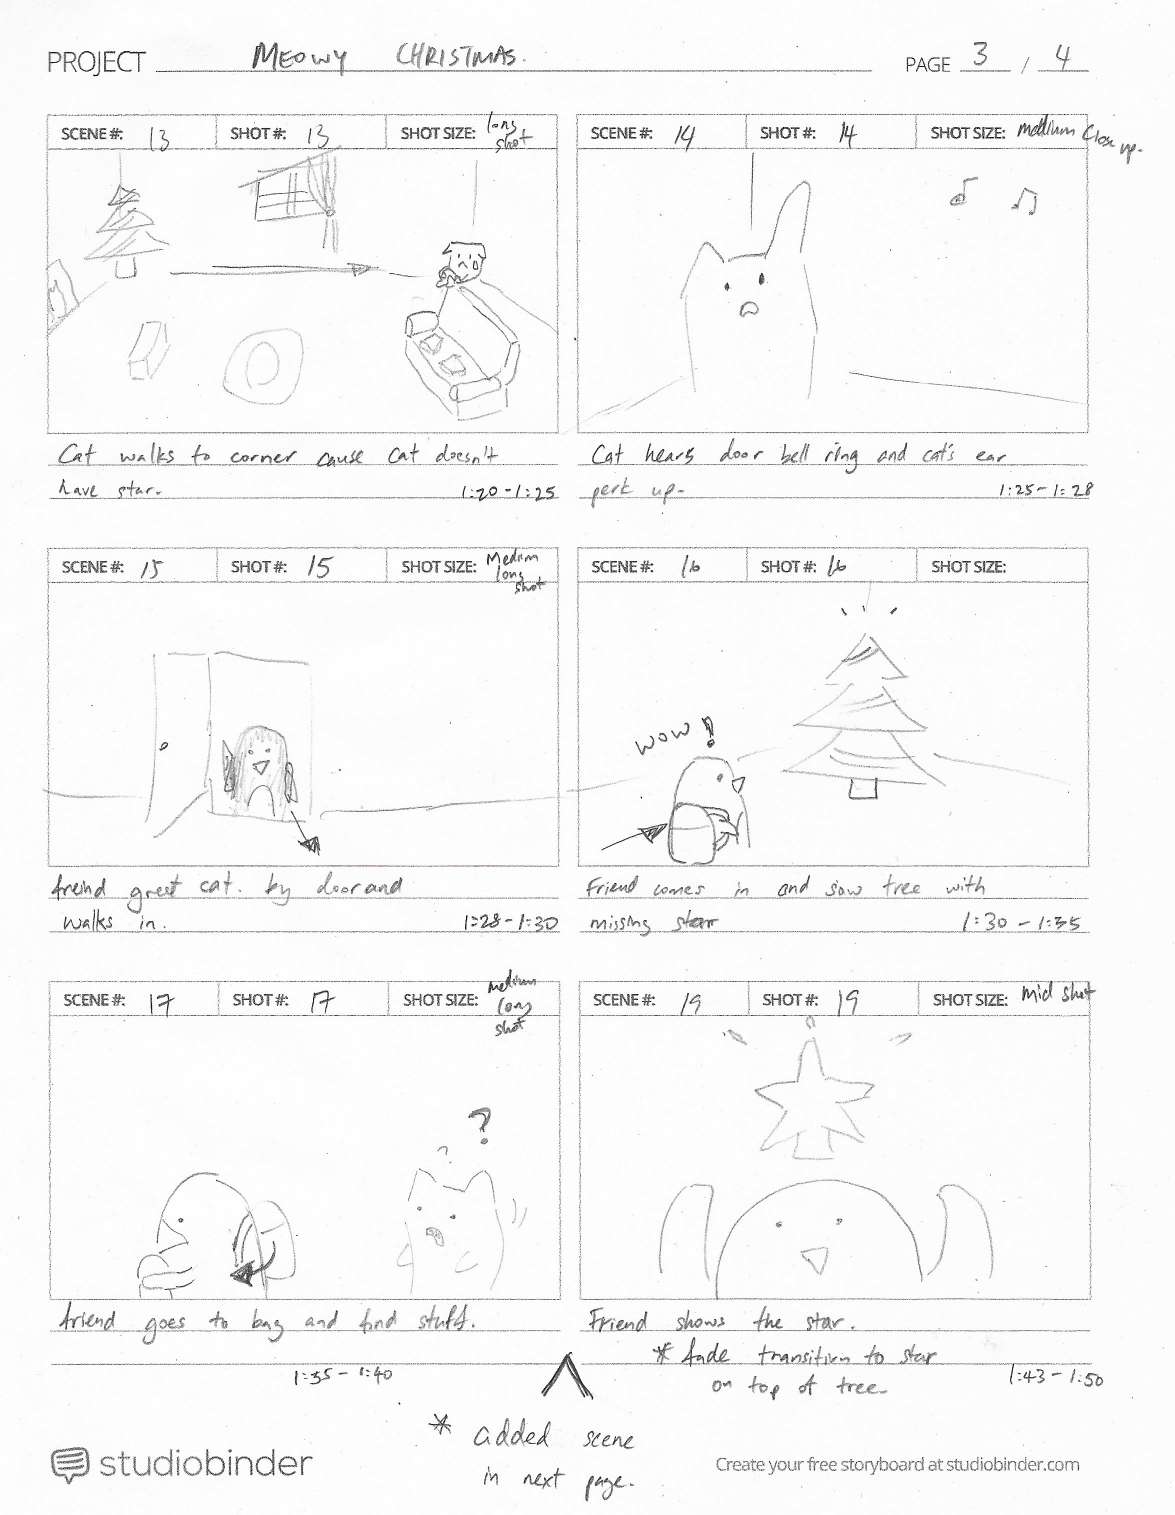 PROJECT MEOWY CHRISTMAS. PAGE 3 / 4
SCENE #: 13 SHOT #: 13 SHOT SIZE: long shot
Cat walks to corner cause cat doesn't
have star. 1:20-1:25
SCENE #: 14 SHOT #: 14 SHOT SIZE: medium close up.
Cat hears door bell ring and cat's ear
perk up. 1:25-1:28
SCENE #: 15 SHOT #: 15 SHOT SIZE: Medium long shot
freind greet cat. by door and
walks in. 1:28-1:30
SCENE #: 16 SHOT #: 16 SHOT SIZE:
WOW!
Friend comes in and saw tree with
missing star 1:30-1:35
SCENE #: 17 SHOT #: 17 SHOT SIZE: medium long shot
? ?
friend goes to bag and find stuff.
1:35-1:40
SCENE #: 19 SHOT #: 19 SHOT SIZE: mid shot
Friend shows the star.
* fade transition to star
on top of tree. 1:43-1:50
* added scene
in next page.
studiobinder
Create your free storyboard at studiobinder.com